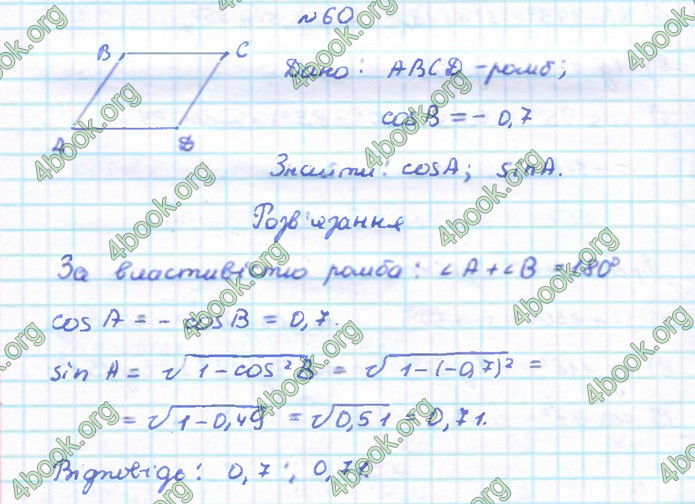 №60
B C
A D
Дано: ABCD - ромб;
cos B = - 0,7
Знайти: cos A; sin A.
Розв'язання
За властивістю ромба: ∠A + ∠B = 180°
cos A = - cos B = 0,7.
sin A = √1 - cos²B = √1 - (-0,7)² =
= √1 - 0,49 = √0,51 = 0,71.
Відповідь: 0,7; 0,71.
4book.org